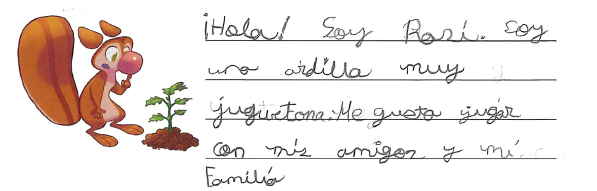 ¡Hola! Soy Rosi. Soy
una ardilla muy
juguetona. Me gusta jugar
con mis amigos y mi
Familia